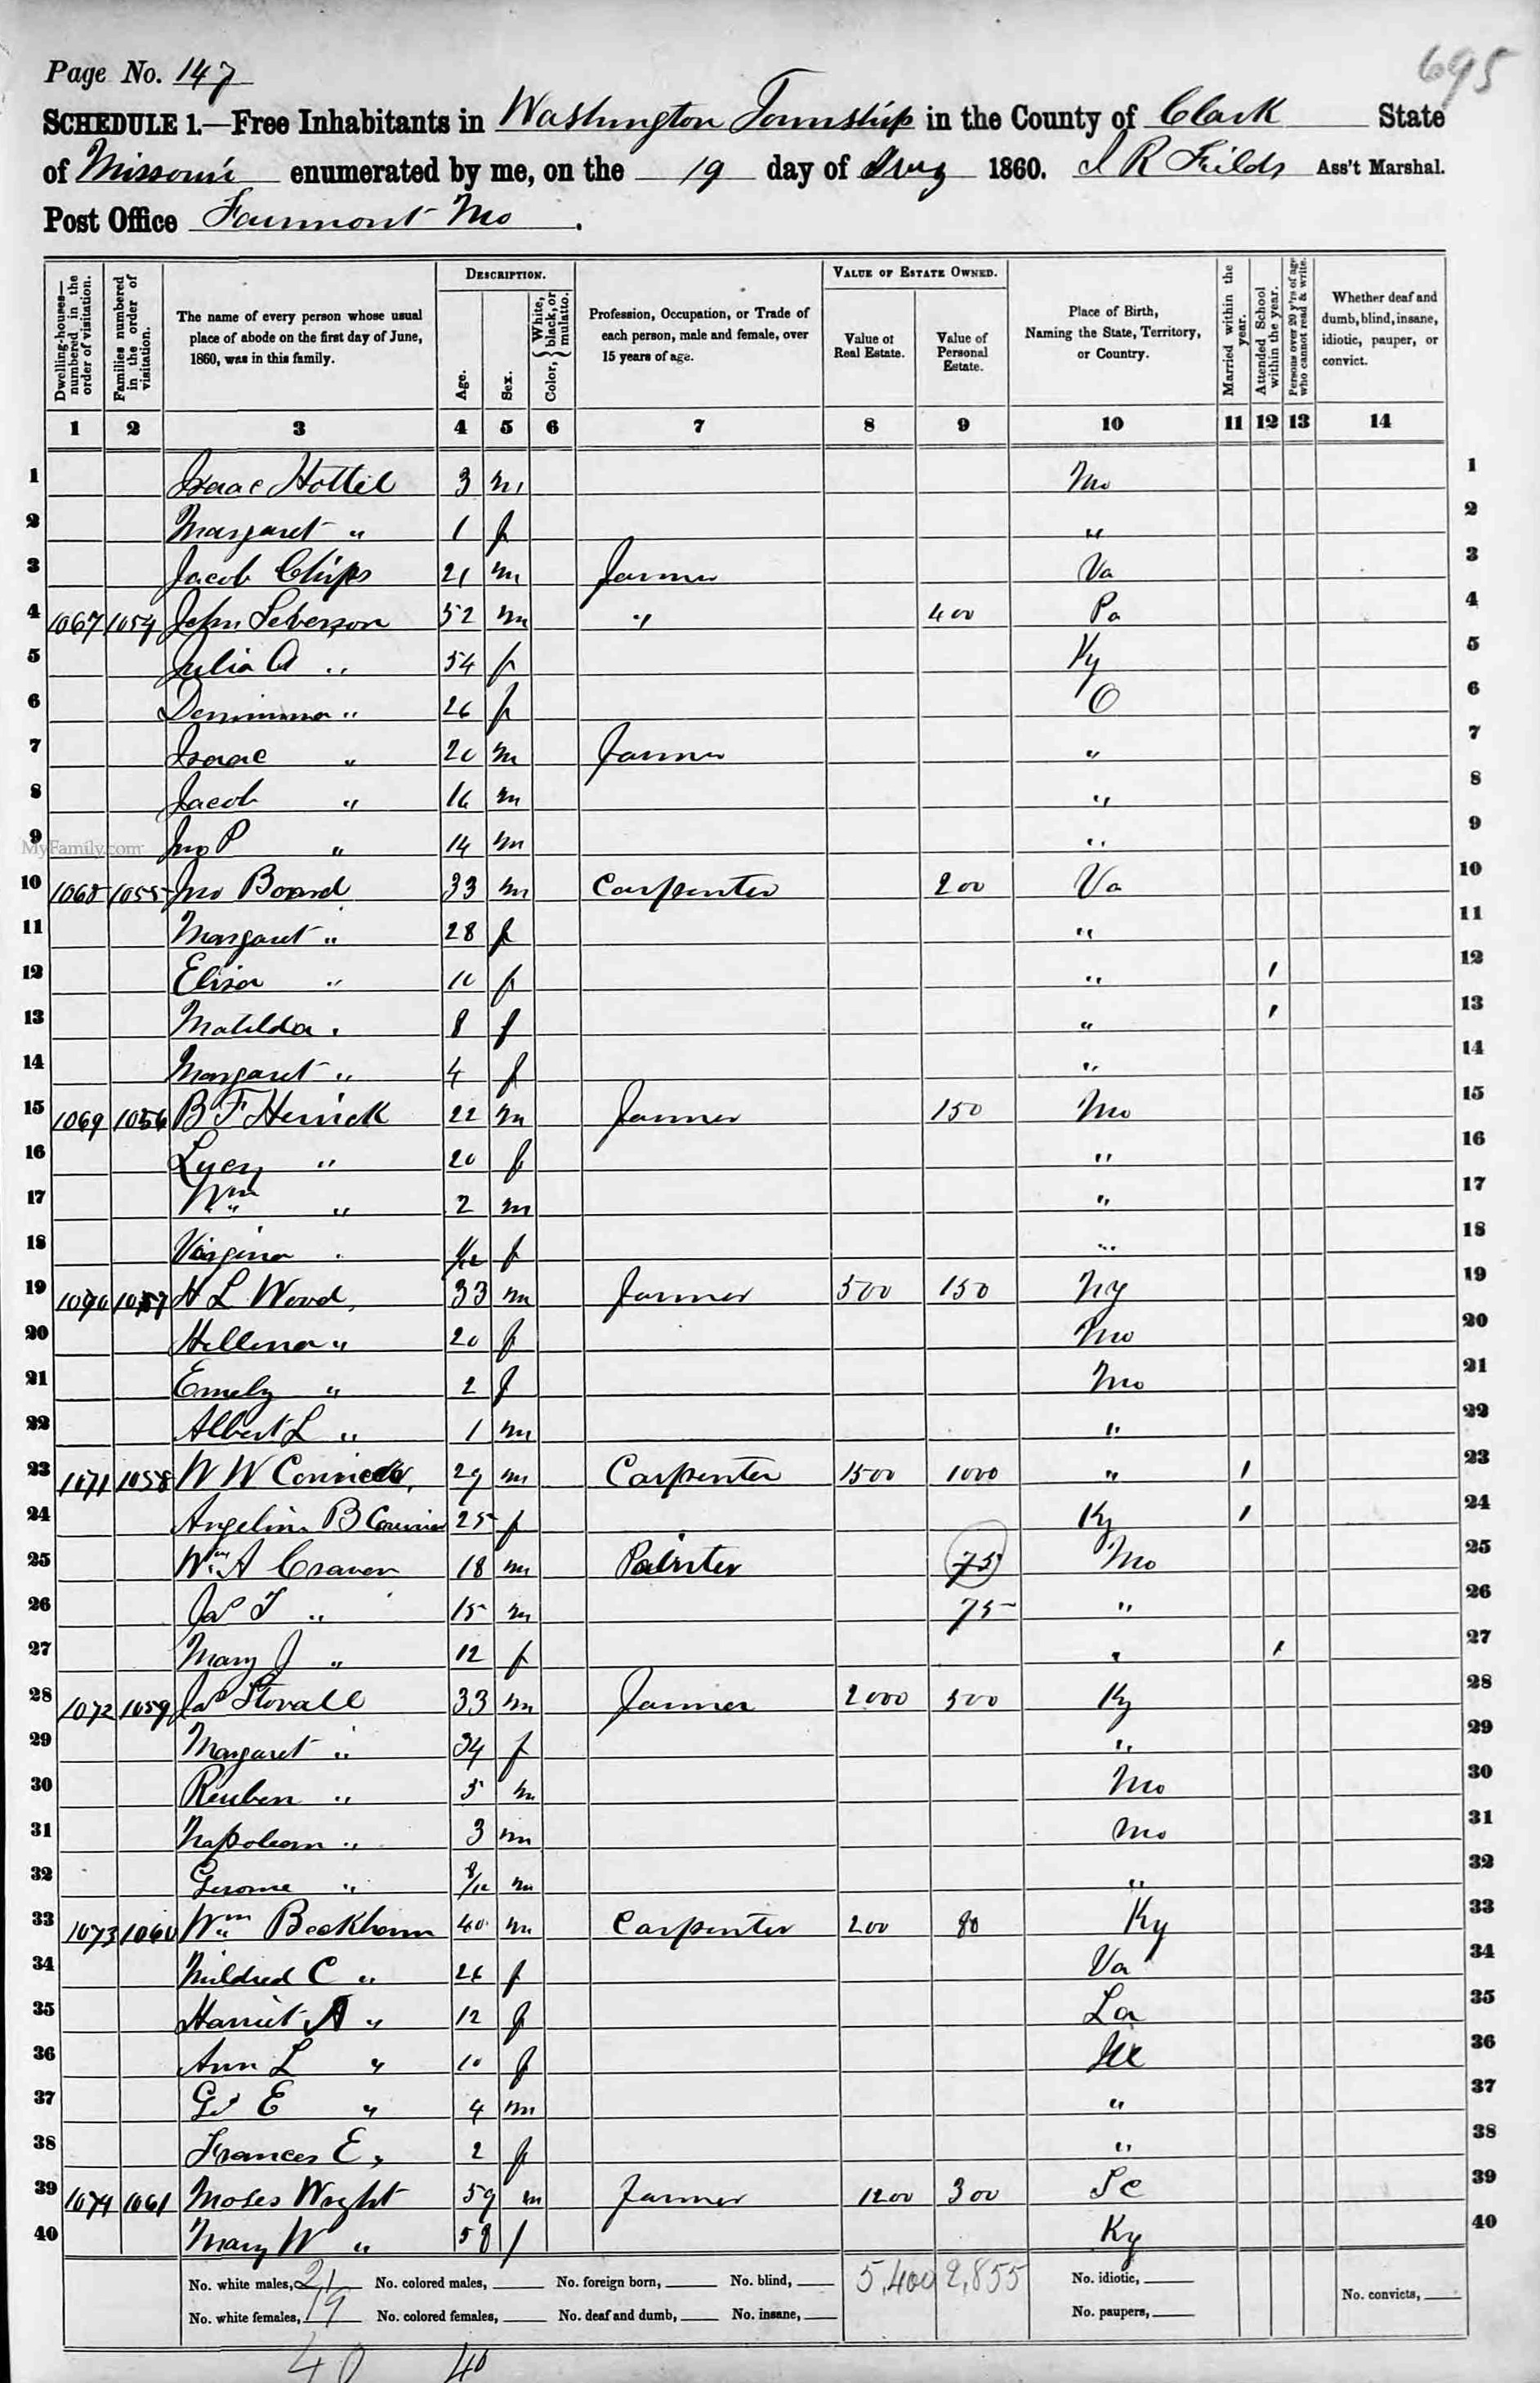 695
Page No. 147
SCHEDULE 1.—Free Inhabitants in Washington Township in the County of Clark State
of Missouri enumerated by me, on the 19 day of Aug 1860. J R Fields Ass't Marshal.
Post Office Fairmont Mo.
Dwelling-houses—numbered in the order of visitation.
Families numbered in the order of visitation.
The name of every person whose usual place of abode on the first day of June, 1860, was in this family.
DESCRIPTION.
Age.
Sex.
Color, { White, black, or mulatto.
Profession, Occupation, or Trade of each person, male and female, over 15 years of age.
VALUE OF ESTATE OWNED.
Value of Real Estate.
Value of Personal Estate.
Place of Birth, Naming the State, Territory, or Country.
Married within the year.
Attended School within the year.
Persons over 20 y'rs of age who cannot read & write.
Whether deaf and dumb, blind, insane, idiotic, pauper, or convict.
1 2 3 4 5 6 7 8 9 10 11 12 13 14
1 Isaac Hottel 3 m Mo 1
2 Margaret " 1 f " 2
3 Jacob Chips 21 m Farmer Va 3
4 1067 1054 John Leberson 52 m " 400 Pa 4
5 Julia A " 54 f Ky 5
6 " 26 f O 6
7 Isaac " 20 m Farmer " 7
8 Jacob " 16 m " 8
9 Jno P " 14 m " 9
MyFamily.com
10 1068 1055 Jno Board 33 m Carpenter 200 Va 10
11 Margaret " 28 f " 11
12 Eliza " 10 f " 1 12
13 Matilda " 8 f " 1 13
14 Margaret " 4 f " 14
15 1069 1056 B F Herrick 22 m Farmer 150 Mo 15
16 Lucy " 20 f " 16
17 Wm " 2 m " 17
18 Virginia " f " 18
19 1070 1057 H L Wood 33 m Farmer 500 150 NY 19
20 Hellena " 20 f Mo 20
21 Emely " 2 f Mo 21
22 Albert L " 1 m " 22
23 1071 1058 W W 29 m Carpenter 1500 1000 " 1 23
24 Angelina B 25 f Ky 1 24
25 Wm A Craven 18 m Painter 75 Mo 25
26 Jas T " 15 m 75 " 26
27 Mary J " 12 f " 1 27
28 1072 1059 Jas Stovall 33 m Farmer 2000 500 Ky 28
29 Margaret " 34 f " 29
30 Reuben " 5 m Mo 30
31 Napoleon " 3 m Mo 31
32 Gerome " 8/12 m " 32
33 1073 1060 Wm Beckham 40 m Carpenter 200 80 Ky 33
34 Mildred C " 26 f Va 34
35 Harriet A " 12 f La 35
36 Ann L " 10 f Ill 36
37 E " 4 m " 37
38 Frances E " 2 f " 38
39 1074 1061 Moses Wright 59 m Farmer 1200 300 SC 39
40 Mary W " 58 f Ky 40
No. white males, 21 No. colored males, No. foreign born, No. blind, 5,400 2,855 No. idiotic, No. convicts,
No. white females, 19 No. colored females, No. deaf and dumb, No. insane, No. paupers,
40 40